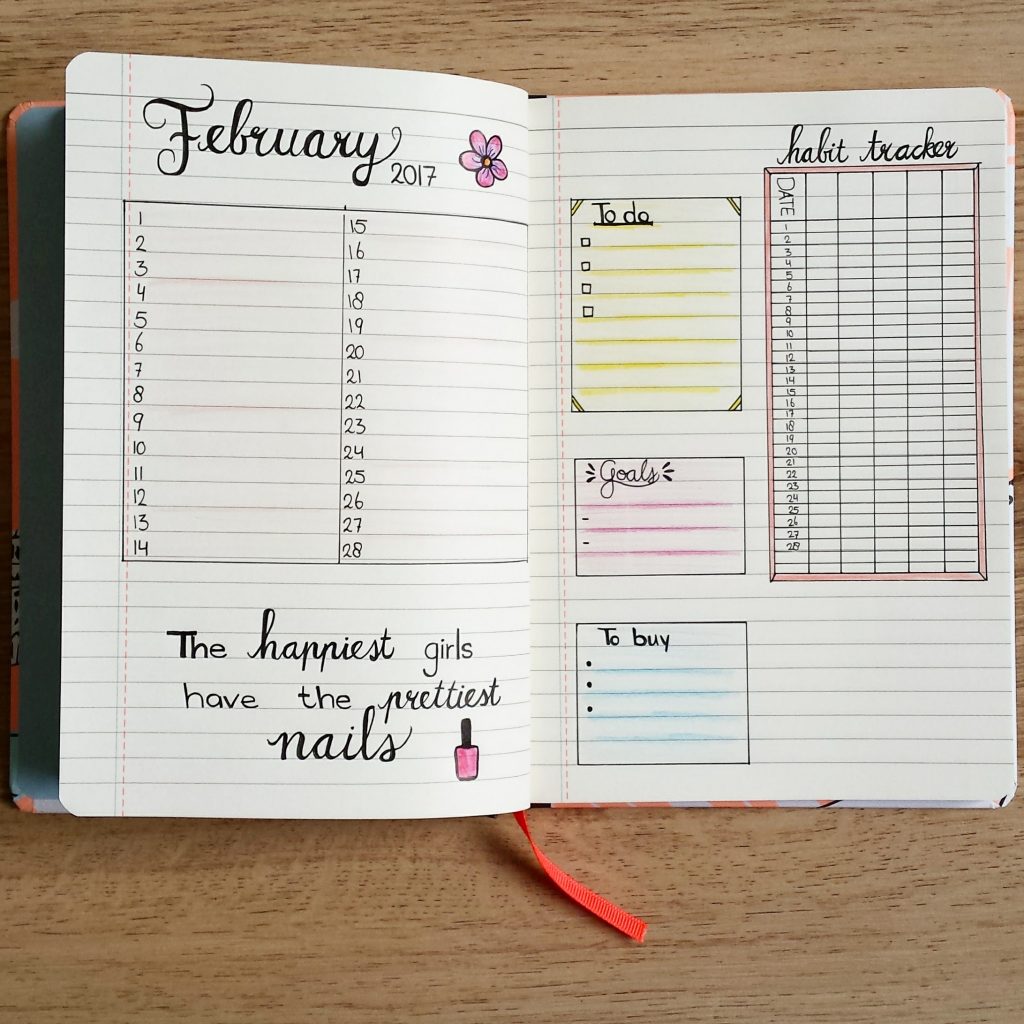 February
2017
1
2
3
4
5
6
7
8
9
10
11
12
13
14
15
16
17
18
19
20
21
22
23
24
25
26
27
28
The happiest girls
have the prettiest
nails
To do
Goals
To buy
habit tracker
DATE
1
2
3
4
5
6
7
8
9
10
11
12
13
14
15
16
17
18
19
20
21
22
23
24
25
26
27
28